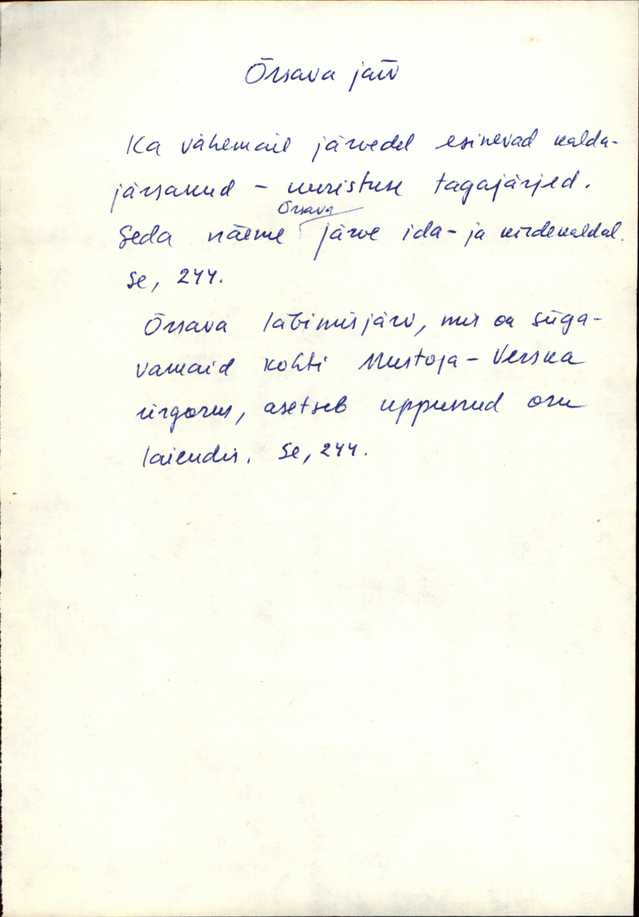 Õrsava järv
Ka vähemail järvedel esinevad kalda-
järsakud – uuristuse tagajärjed.
Seda näeme Õrsava järve ida- ja kirdekaldal.
Se, 244.
Õrsava läbimisjärv, mis on süga-
vamaid kohti Mustoja – Verska
ürgorus, asetseb uppunud oru
laiendis. Se, 244.